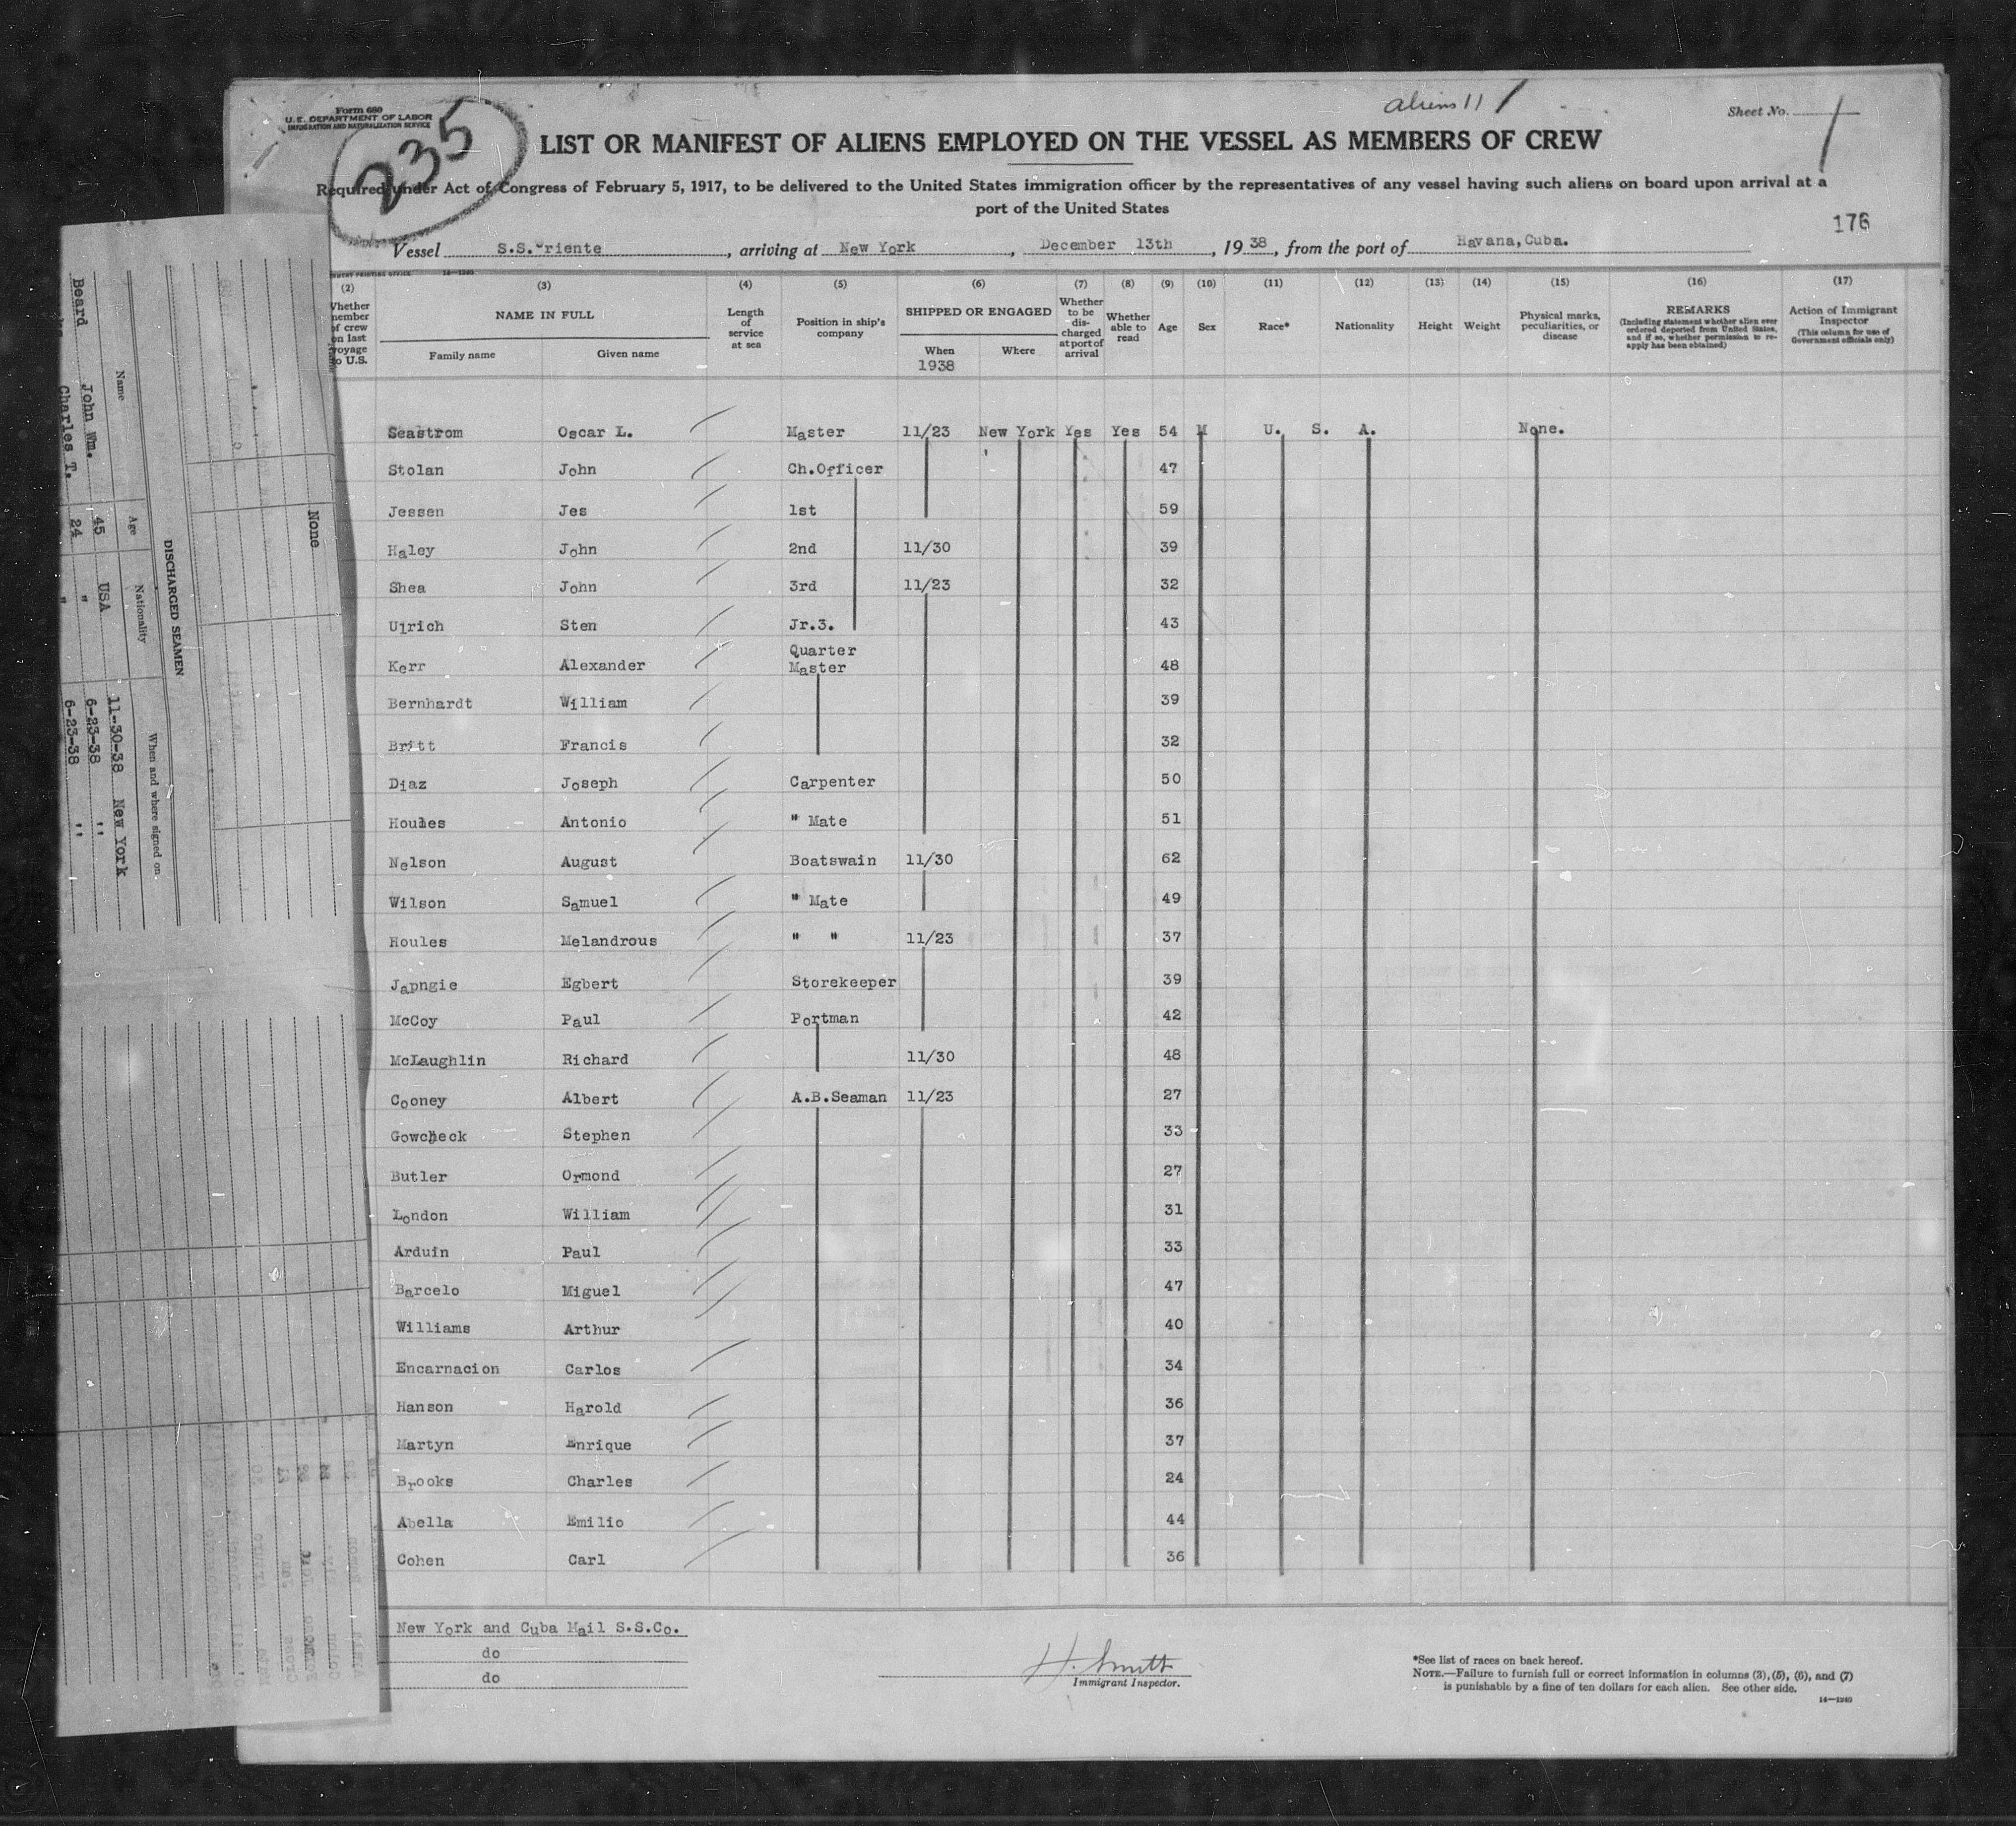 aliens 11 /
Form 680
U.S. DEPARTMENT OF LABOR
IMMIGRATION AND NATURALIZATION SERVICE
235
Sheet No. 1
LIST OR MANIFEST OF ALIENS EMPLOYED ON THE VESSEL AS MEMBERS OF CREW
Required under Act of Congress of February 5, 1917, to be delivered to the United States immigration officer by the representatives of any vessel having such aliens on board upon arrival at a
port of the United States
176
Vessel S.S. riente, arriving at New York, December 13th, 1938, from the port of Havana, Cuba.
(2) (3) (4) (5) (6) (7) (8) (9) (10) (11) (12) (13) (14) (15) (16) (17)
Whether member of crew on last voyage to U.S.
NAME IN FULL
Family name Given name
Length of service at sea
Position in ship's company
SHIPPED OR ENGAGED
When Where
1938
Whether to be discharged at port of arrival
Whether able to read
Age
Sex
Race*
Nationality
Height
Weight
Physical marks, peculiarities, or disease
REMARKS
(Including statement whether alien ever ordered deported from United States, and if so, whether permission to reapply has been obtained)
Action of Immigrant Inspector
(This column for use of Government officials only)
Seastrom Oscar L. Master 11/23 New York Yes Yes 54 M U. S. A. None.
Stolan John Ch.Officer 47
Jessen Jes 1st 59
Haley John 2nd 11/30 39
Shea John 3rd 11/23 32
Ulrich Sten Jr.3. 43
Kerr Alexander Quarter Master 48
Bernhardt William 39
Britt Francis 32
Diaz Joseph Carpenter 50
Houles Antonio " Mate 51
Nelson August Boatswain 11/30 62
Wilson Samuel " Mate 49
Houles Melandrous " " 11/23 37
Japngie Egbert Storekeeper 39
McCoy Paul Portman 42
McLaughlin Richard 11/30 48
Cooney Albert A.B.Seaman 11/23 27
Gowcheck Stephen 33
Butler Ormond 27
London William 31
Arduin Paul 33
Barcelo Miguel 47
Williams Arthur 40
Encarnacion Carlos 34
Hanson Harold 36
Martyn Enrique 37
Brooks Charles 24
Abella Emilio 44
Cohen Carl 36
New York and Cuba Mail S.S.Co.
do
do
H. Smith
Immigrant Inspector.
*See list of races on back hereof.
NOTE.—Failure to furnish full or correct information in columns (3), (5), (6), and (7)
is punishable by a fine of ten dollars for each alien. See other side.
14—1240
None
DISCHARGED SEAMEN
Name Age Nationality When and where signed on
11-30-38 New York
Beard John Wm. 45 USA 6-23-38 "
Charles T. 24 " 6-23-38 "